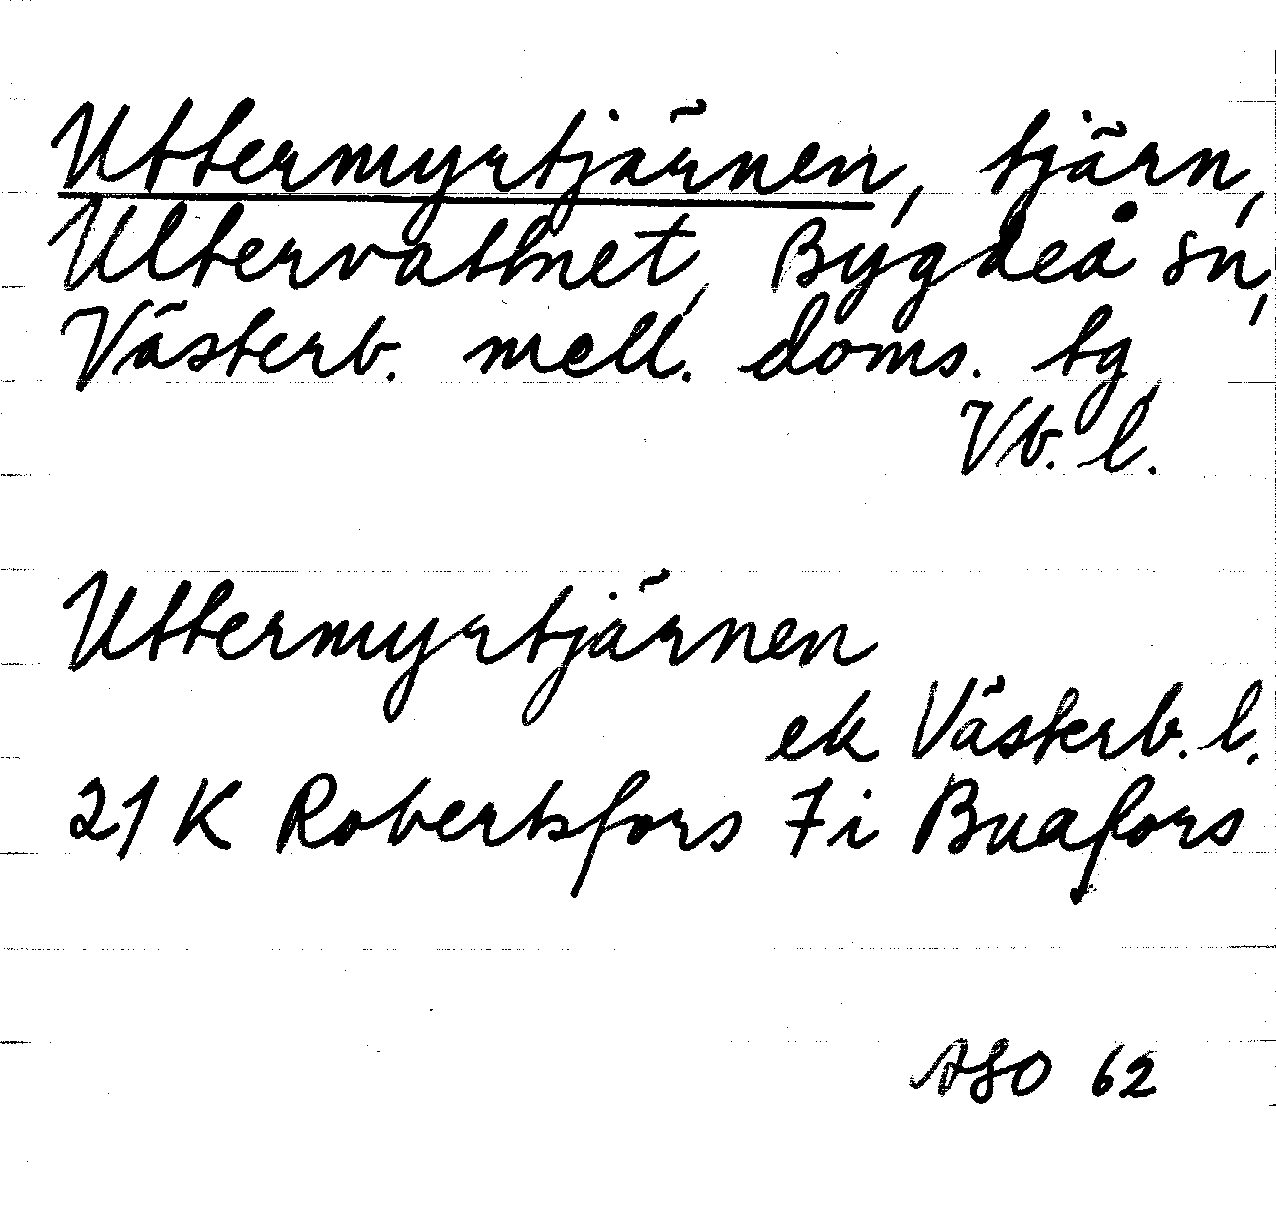 Uttermyrtjärnen, tjärn,
Ultervattnet, Bygdeå sn,
Västerb. mell. doms. tg,
Vb. l.
Uttermyrtjärnen
ek Västerb. l.
21 K Robertsfors 7i Buafors
ASO 62